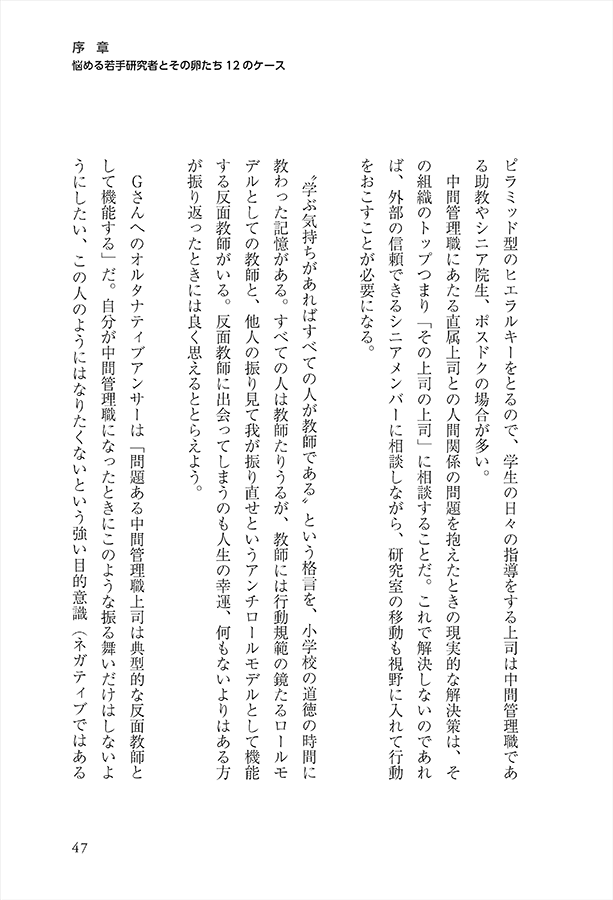 序　章
悩める若手研究者とその卵たち 12 のケース
ピラミッド型のヒエラルキーをとるので、学生の日々の指導をする上司は中間管理職であ
る助教やシニア院生、ポスドクの場合が多い。
　中間管理職にあたる直属上司との人間関係の問題を抱えたときの現実的な解決策は、そ
の組織のトップつまり「その上司の上司」に相談することだ。これで解決しないのであれ
ば、外部の信頼できるシニアメンバーに相談しながら、研究室の移動も視野に入れて行動
をおこすことが必要になる。
　〝学ぶ気持ちがあればすべての人が教師である〟という格言を、小学校の道徳の時間に
教わった記憶がある。すべての人は教師たりうるが、教師には行動規範の鏡たるロールモ
デルとしての教師と、他人の振り見て我が振り直せというアンチロールモデルとして機能
する反面教師がいる。反面教師に出会ってしまうのも人生の幸運、何もないよりはある方
が振り返ったときには良く思えるととらえよう。
　Gさんへのオルタナティブアンサーは「問題ある中間管理職上司は典型的な反面教師と
して機能する」だ。自分が中間管理職になったときにこのような振る舞いだけはしないよ
うにしたい、この人のようにはなりたくないという強い目的意識（ネガティブではある
47